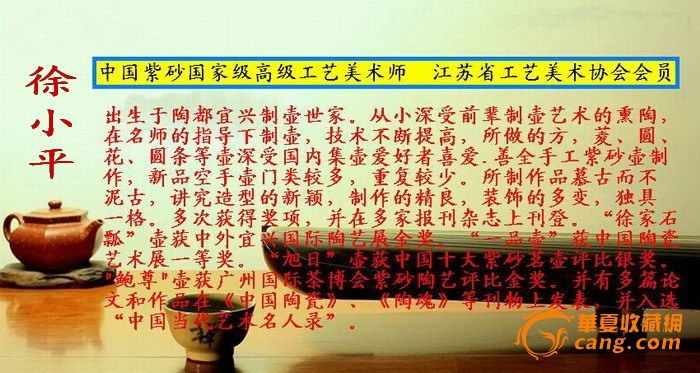 徐小平
中国紫砂国家级高级工艺美术师 江苏省工艺美术协会会员
出生于陶都宜兴制壶世家。从小深受前辈制壶艺术的熏陶,
在名师的指导下制壶,技术不断提高,所做的方,菱、圆、
花、圆条等壶深受国内集壶爱好者喜爱.善全手工紫砂壶制
作,新品空手壶门类较多,重复较少。所制作品慕古而不
泥古,讲究造型的新颖,制作的精良,装饰的多变,独具
一格。多次获得奖项,并在多家报刊杂志上刊登。“徐家石
瓢”壶获中外宜兴国际陶艺展金奖。“一品壶”获中国陶瓷
艺术展一等奖。“旭日”壶获中国十大紫砂茗壶评比银奖。
"鲍尊"壶获广州国际茶博会紫砂陶艺评比金奖。并有多篇论
文和作品在《中国陶瓷》、《陶魂》等刊物上发表。并入选
“中国当代艺术名人录”。
華夏收藏網
cang.com